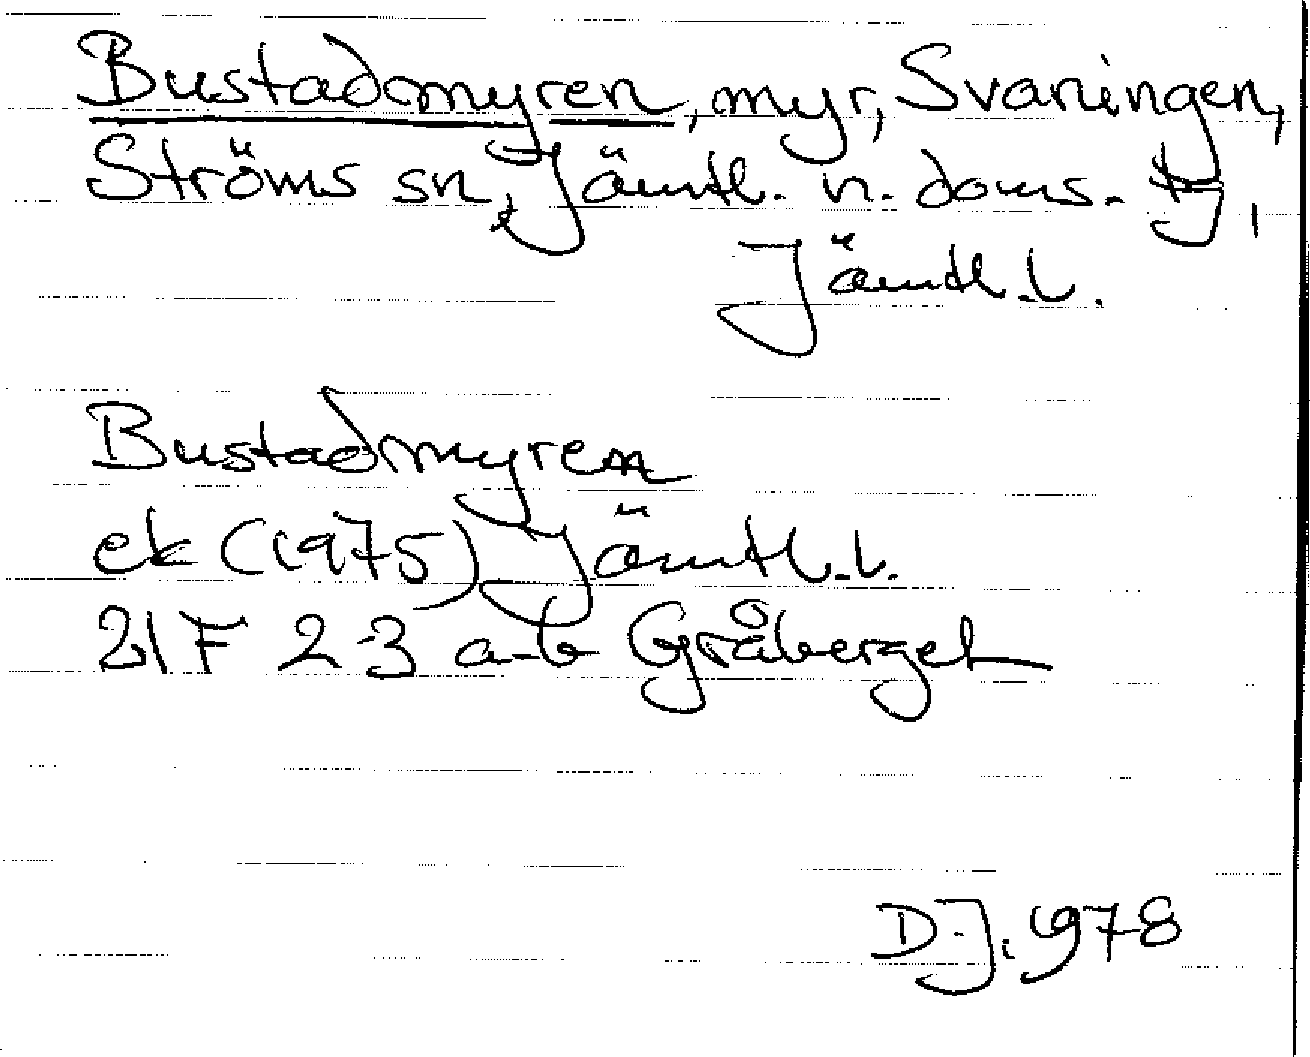 Bustadmyren, myr, Svaningen,
Ströms sn, Jämtl. n. doms. tg,
Jämtl. l.
Bustadmyren
ek (1975) Jämtl. l.
21F 2-3 a-b Gråberget
D.J. 1978